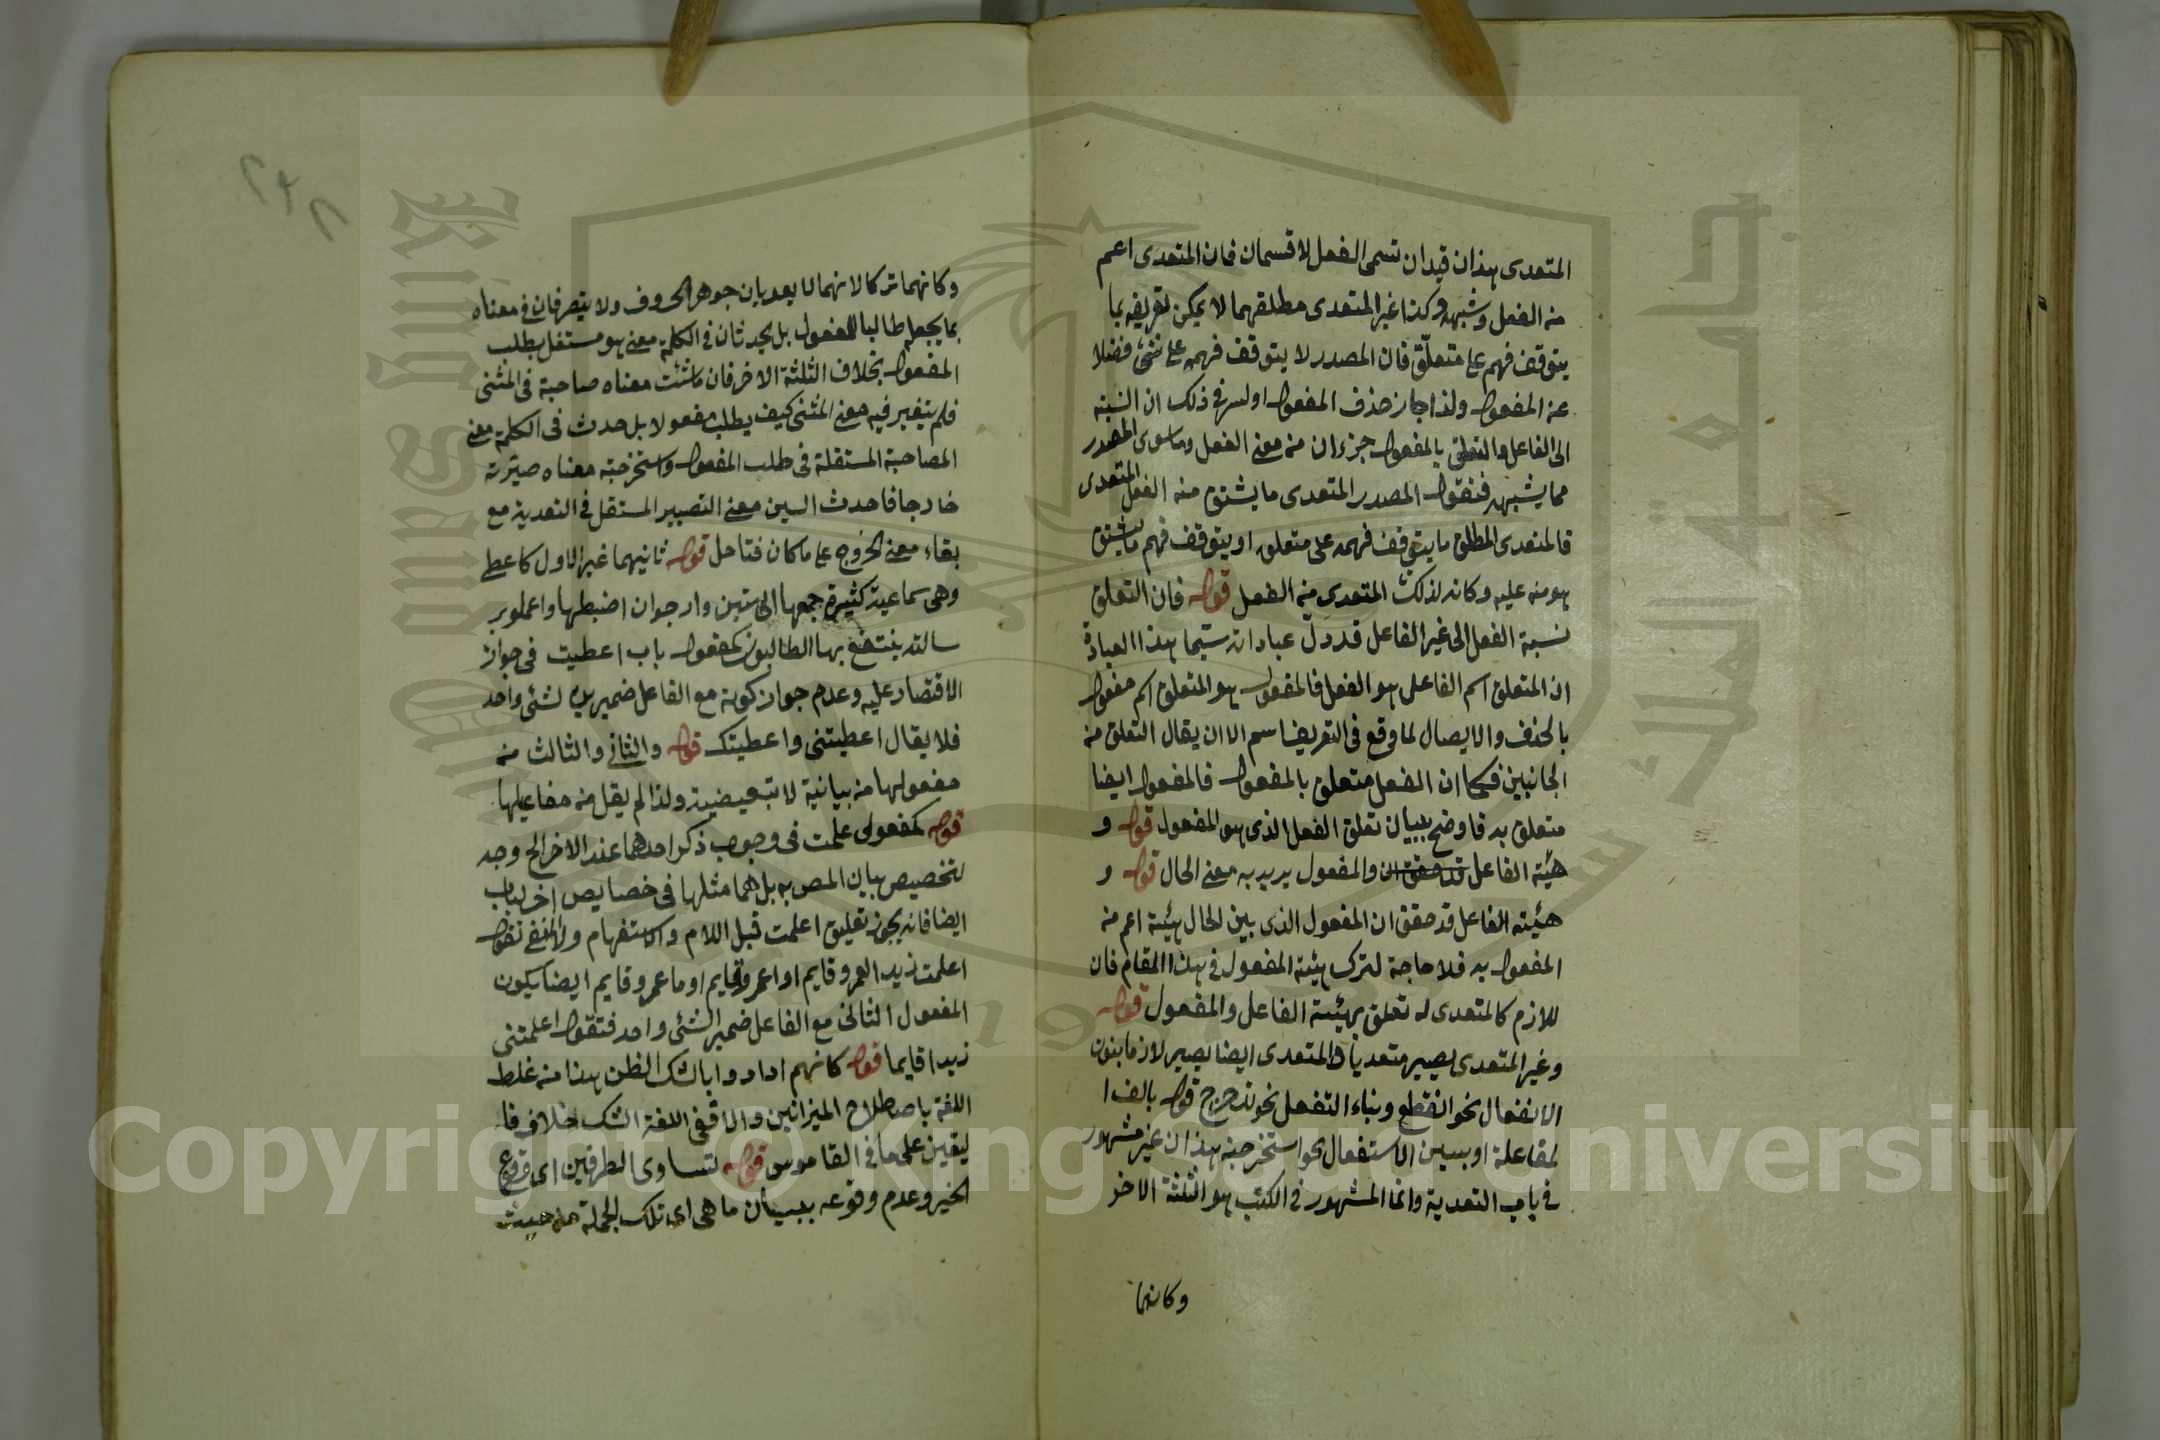 المتعدى هذان قيدان تسمى الفعل لا قسمان فان المتعدى اعم
من الفعل وشبهه وكذا غير المتعدى مطلقهما لا يمكن تعريفه بما
يتوقف فهمه على متعلق فان المصدر لا يتوقف فهمه على شئ فضلا
عن المفعول ولذا جاز حذف المفعول اوليس فى ذلك ان النسبة
الى الفاعل والتعلق بالمفعول جزءان من معنى الفعل وما سوى المصدر
مما يشبهه فنقول المصدر المتعدى ما يشتق منه الفعل المتعدى
فالمتعدى المطلق ما يتوقف فهمه على متعلق او يتوقف فهم ما يشتق
هو منه عليه وكانه لذلك المتعدى من الفعل قوله فان التعلق
نسبة الفعل الى غير الفاعل قد دل عباراته سيما هذا العبارة
ان المتعلق اسم الفاعل هو الفعل فالمفعول هو المتعلق اسم مفعول
بالحذف والايصال لما وقع فى التعريف اسم الا ان يقال التعلق من
الجانبين فكما ان الفعل متعلق بالمفعول فالمفعول ايضا
متعلق به فاوضح ببيان تعلق الفعل الذى هو المفعول قوله و
هيئة الفاعل والمفعول يريد به معنى الحال قوله و
هيئته الفاعل قد حقق ان المفعول الذى بين الحال هيئة اعم من
المفعول به فلا حاجة لترك هيئة المفعول فى هذا المقام فان
للازم كالمتعدى له تعلق بهيئة الفاعل والمفعول قوله
وغير المتعدى يصير متعديا والمتعدى ايضا يصير لازما بنون
الانفعال نحو انقطع وبناء التفعل نحو تدحرج قوله بالف ا
لمفاعلة او بسين الاستفعال نحو استخرجته هذان غير مشهور
فى باب التعدية وانما المشهور فى الكتب هو الثلثة الاخر
وكانهما
وكانهما تركا لانهما لا يعديان جوهر الحروف ولا يتصرفان فى معناه
بما يجعله طالبا للمفعول بل يحدثان فى الكلمة معنى هو مستقل بطلب
المفعول بخلاف الثلثة الاخر فان ماشيت معناه صاحبة فى المشى
فلم يتغير فيه معنى المشى كيف يطلب مفعولا بل حدث فى الكلمة معنى
المصاحبة المستقلة فى طلب المفعول واستخرجته معناه صيرته
خارجا فاحدث السين معنى التصيير المستقل فى التعدية مع
بقاء معنى الخروج على ما كان فتامل قوله ثانيهما غير الاول كاعطى
وهى سماعية كثيرة جمعها الى ستين وارجوان اضبطها واعملو بر
سالته ينتفع بها الطالبون كمفعول باب اعطيت فى جواز
الاقتصار عليه وعدم جواز كونه مع الفاعل ضميرين لشئ واحد
فلا يقال اعطيتنى واعطيتك قوله والثانى والثالث من
مفعولها من بيانية لا تبعيضية ولذا لم يقل من مفاعيلها
قوله كمفعولى علمت فى وجوب ذكر احدهما عند الاخر الخ وجه
لتخصيص بيان المص به بل هما مثلها فى خصايص اخر لباب
ايضا فانه يجوز تعليق اعلمت قبل اللام والاستفهام والنفى نقول
اعلمت زيدا لعمرو قايم او اعمرو قايم او ما عمرو قايم ايضا يكون
المفعول الثانى مع الفاعل ضمير الشئ واحد فتقول اعلمتنى
زيدا قايما قوله كانهم ارادوا بالشك الظن هذا من غلط
اللغة باصطلاح الميزانين والا ففى اللغة الشك خلاف فا
ليقين على ما فى القاموس قوله تساوى الطرفين اى وقوع
الخبر وعدم وقوعه ببيان ما هى اى تلك الجملة من حيث
٢٤٢
Copyright © King Saud University
King Saud University
جامعة الملك سعود